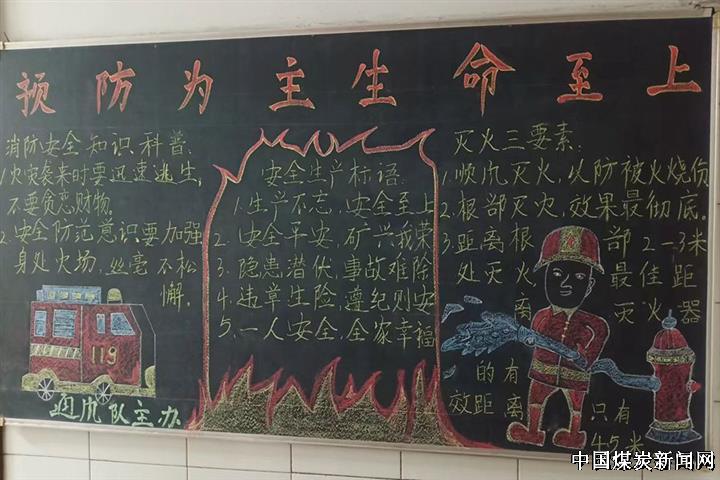 预防为主生命至上
消防安全知识科普:
1.火灾袭来时要迅速逃生,
不要贪恋财物。
2.安全防范意识要加强
身处火场,丝毫不松
懈。
119
通风队主办
安全生产标语:
1.生产不忘,安全至上
2.安全平安,矿兴我荣
3.隐患潜伏,事故难除
4.违章生险,遵纪则安
5.一人安全,全家幸福
灭火三要素:
1.顺风灭火,以防被火烧伤
2.根部灭灾,效果最彻底。
3.距离根部2-3米
处灭火最佳距
离,灭火器
的有
效距离只有
4-5米
中国煤炭新闻网